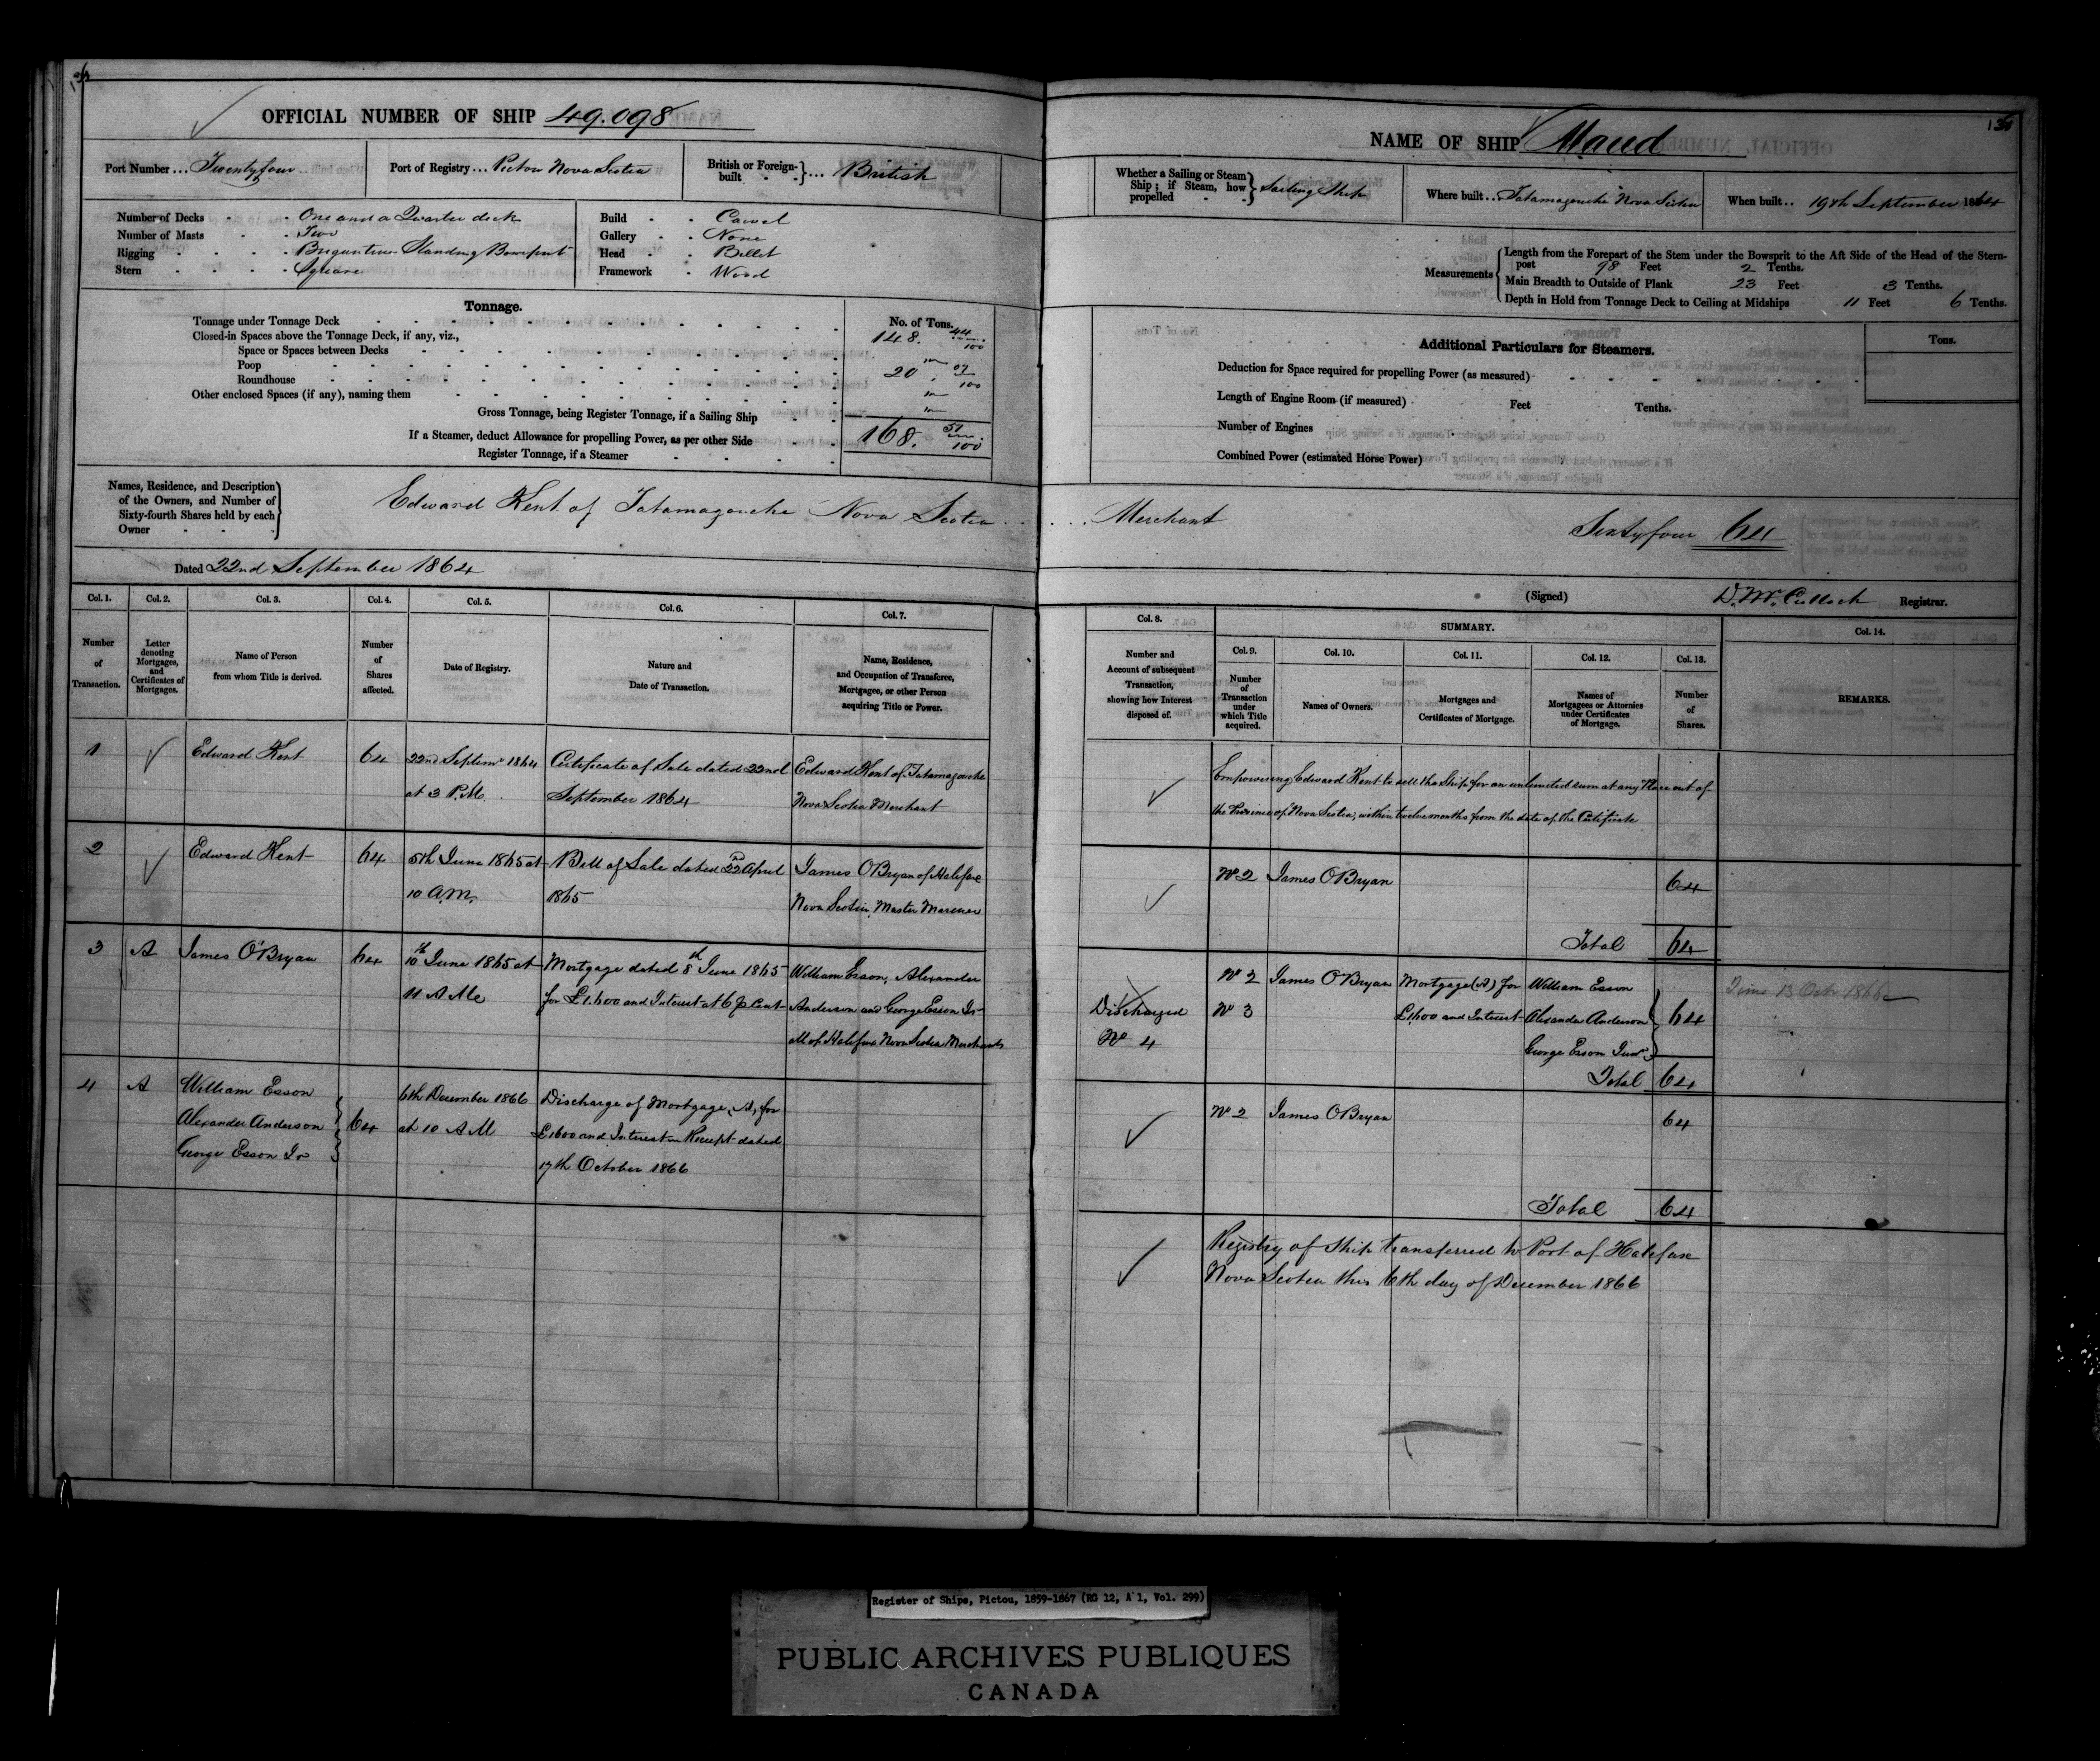 OFFICIAL NUMBER OF SHIP 49.098
Port Number ... Twentyfour
Port of Registry ... Pictou Nova Scotia
British or Foreign-built ... British
Number of Decks - One and a Quarter deck
Number of Masts - Two
Rigging - Brigantine Standing Bowsprit
Stern - Square
Build - Carvel
Gallery - None
Head - Billet
Framework - Wood
Tonnage.
No. of Tons.
Tonnage under Tonnage Deck 148. 44/100
Closed-in Spaces above the Tonnage Deck, if any, viz.,
Space or Spaces between Decks
Poop 20 07/100
Roundhouse
Other enclosed Spaces (if any), naming them
Gross Tonnage, being Register Tonnage, if a Sailing Ship 168. 51/100
If a Steamer, deduct Allowance for propelling Power, as per other Side
Register Tonnage, if a Steamer
Names, Residence, and Description
of the Owners, and Number of
Sixty-fourth Shares held by each
Owner
Edward Kent of Tatamagouche Nova Scotia
Dated 22nd September 1864
Col. 1. Col. 2. Col. 3. Col. 4. Col. 5. Col. 6. Col. 7.
Number of Transaction.
Letter denoting Mortgages, and Certificates of Mortgages.
Name of Person from whom Title is derived.
Number of Shares affected.
Date of Registry.
Nature and Date of Transaction.
Name, Residence, and Occupation of Transferee, Mortgagee, or other Person acquiring Title or Power.
1 Edward Kent 64 22nd Septemr 1864 Certificate of Sale dated 22nd Edward Kent of Tatamagouche
at 3 P.M. September 1864 Nova Scotia Merchant
2 Edward Kent 64 5th June 1865 at Bill of Sale dated 22nd April James OBryan of Halifax
10 A.M. 1865 Nova Scotia, Master Mariner
3 A James O'Bryan 64 10th June 1865 at Mortgage dated 8th June 1865 William Esson, Alexander
11 A M for £1.600 and Interest at 6 p Cent Anderson and George Esson Jr
all of Halifax Nova Scotia Merchants
4 A William Esson 6th December 1866 Discharge of Mortgage, A, for
Alexander Anderson 64 at 10 A M £1600 and Interest Receipt dated
George Esson Jr 17th October 1866
NAME OF SHIP Maud
Whether a Sailing or Steam Ship; if Steam, how propelled Sailing Ship
Where built .. Tatamagouche Nova Scotia
When built .. 19th September 1864
Measurements
Length from the Forepart of the Stem under the Bowsprit to the Aft Side of the Head of the Stern-
post 98 Feet 2 Tenths.
Main Breadth to Outside of Plank 23 Feet 3 Tenths.
Depth in Hold from Tonnage Deck to Ceiling at Midships 11 Feet 6 Tenths.
Additional Particulars for Steamers.
Tons.
Deduction for Space required for propelling Power (as measured)
Length of Engine Room (if measured) Feet Tenths.
Number of Engines
Combined Power (estimated Horse Power)
Merchant Sixtyfour 64
(Signed) D. McCulloch Registrar.
Col. 8.
Number and Account of subsequent Transaction, showing how Interest disposed of.
SUMMARY.
Col. 9. Col. 10. Col. 11. Col. 12. Col. 13. Col. 14.
Number of Transaction under which Title acquired.
Names of Owners.
Mortgages and Certificates of Mortgage.
Names of Mortgagees or Attornies under Certificates of Mortgage.
Number of Shares.
REMARKS.
Empowering Edward Kent to sell the Ship for an unlimited sum at any Place out of
the Province of Nova Scotia, within twelve months from the date of the Certificate
No 2 James OBryan 64
Total 64
No 2 James OBryan Mortgage (A) for William Esson
Discharged No 3 £1,600 and Interest Alexander Anderson 64
No 4 George Esson Junr
Total 64
13 Octr 1866
No 2 James OBryan 64
Total 64
Registry of Ship transferred to Port of Halifax
Nova Scotia this 6th day of December 1866
Register of Ships, Pictou, 1859-1867 (RG 12, A 1, Vol. 299)
PUBLIC ARCHIVES PUBLIQUES
CANADA